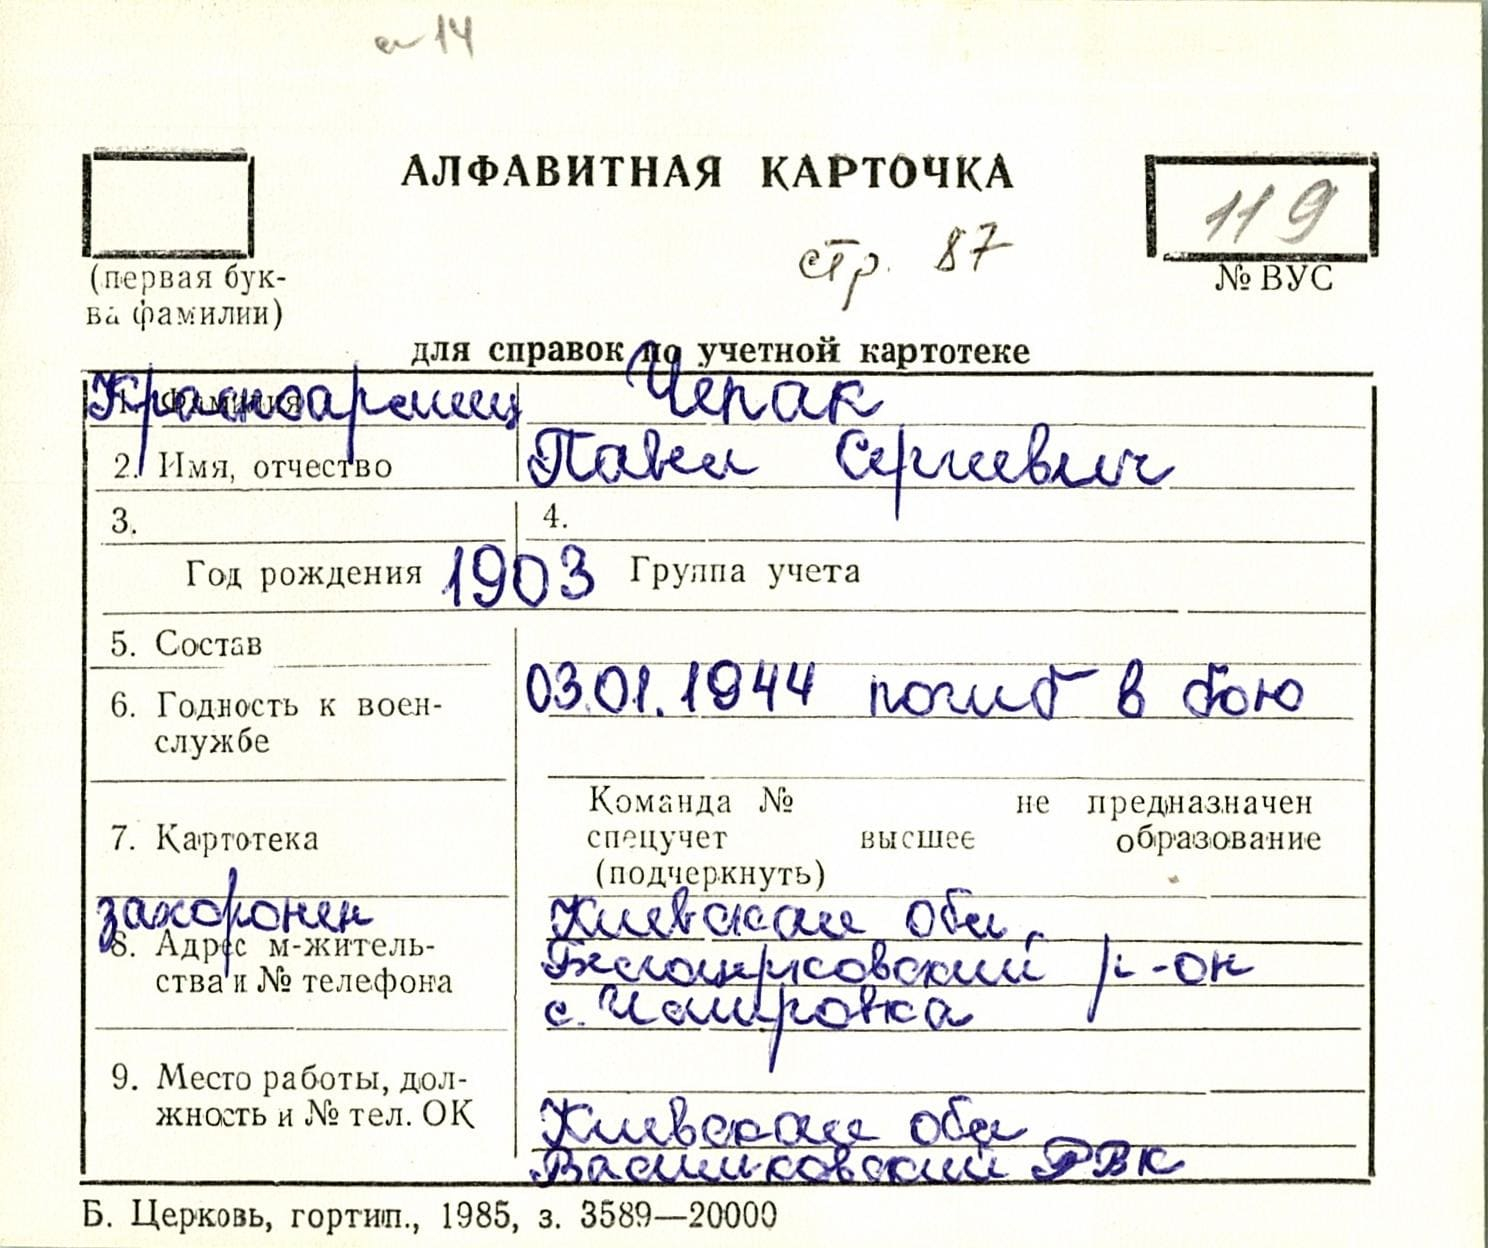 14
АЛФАВИТНАЯ КАРТОЧКА
119
стр. 87
(первая бук-
ва фамилии)
№ ВУС
для справок по учетной картотеке
1. Фамилия
Красноармеец Черпак
2. Имя, отчество Павел Сергиевич
3. 4.
Год рождения 1903 Группа учета
5. Состав
03.01.1944 погиб в бою
6. Годность к воен-
службе
Команда № не предназначен
7. Картотека спецучет высшее образование
(подчеркнуть)
захоронен Киевская обл.
8. Адрес м-житель- Белоцерковский р-он
ства и № телефона с.
9. Место работы, дол-
жность и № тел. ОК Киевская обл
Васильковский РВК
Б. Церковь, гортип., 1985, з. 3589—20000